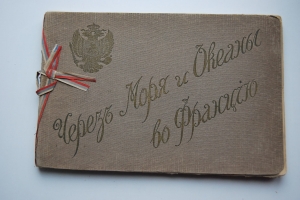 Черезъ Моря и Океаны
во Францію